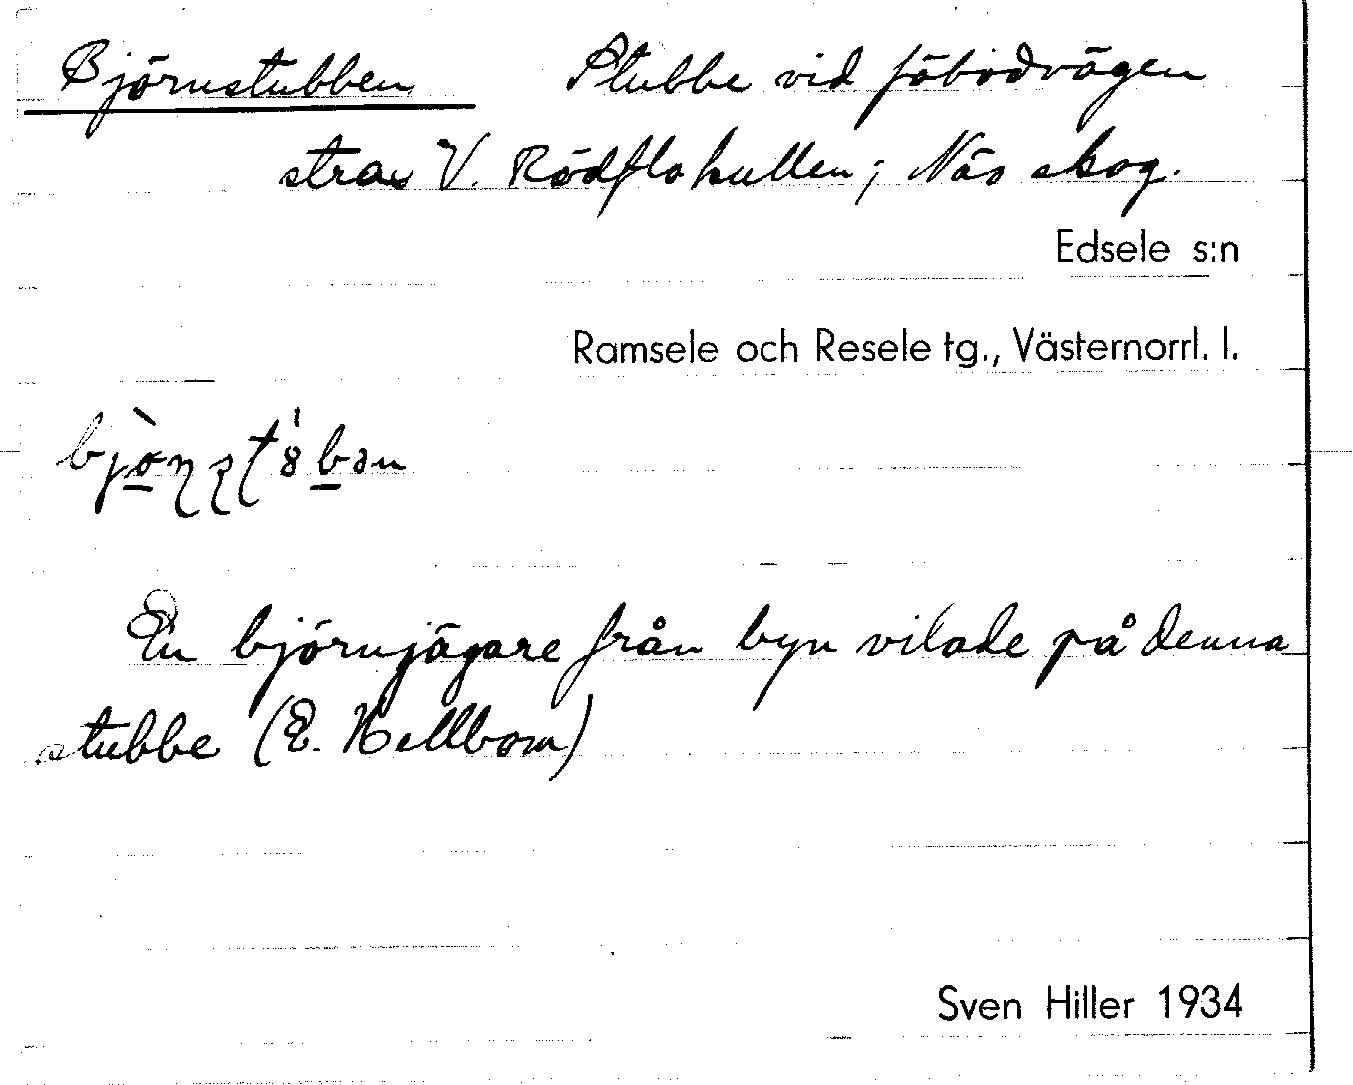 Björnstubben Stubbe vid fäbodvägen
strax V. Rödflohullen; Näs skog.
Edsele s:n
Ramsele och Resele tg., Västernorrl. l.
En björnjägare från byn vilade på denna
stubbe (E. Hellbom)
Sven Hiller 1934